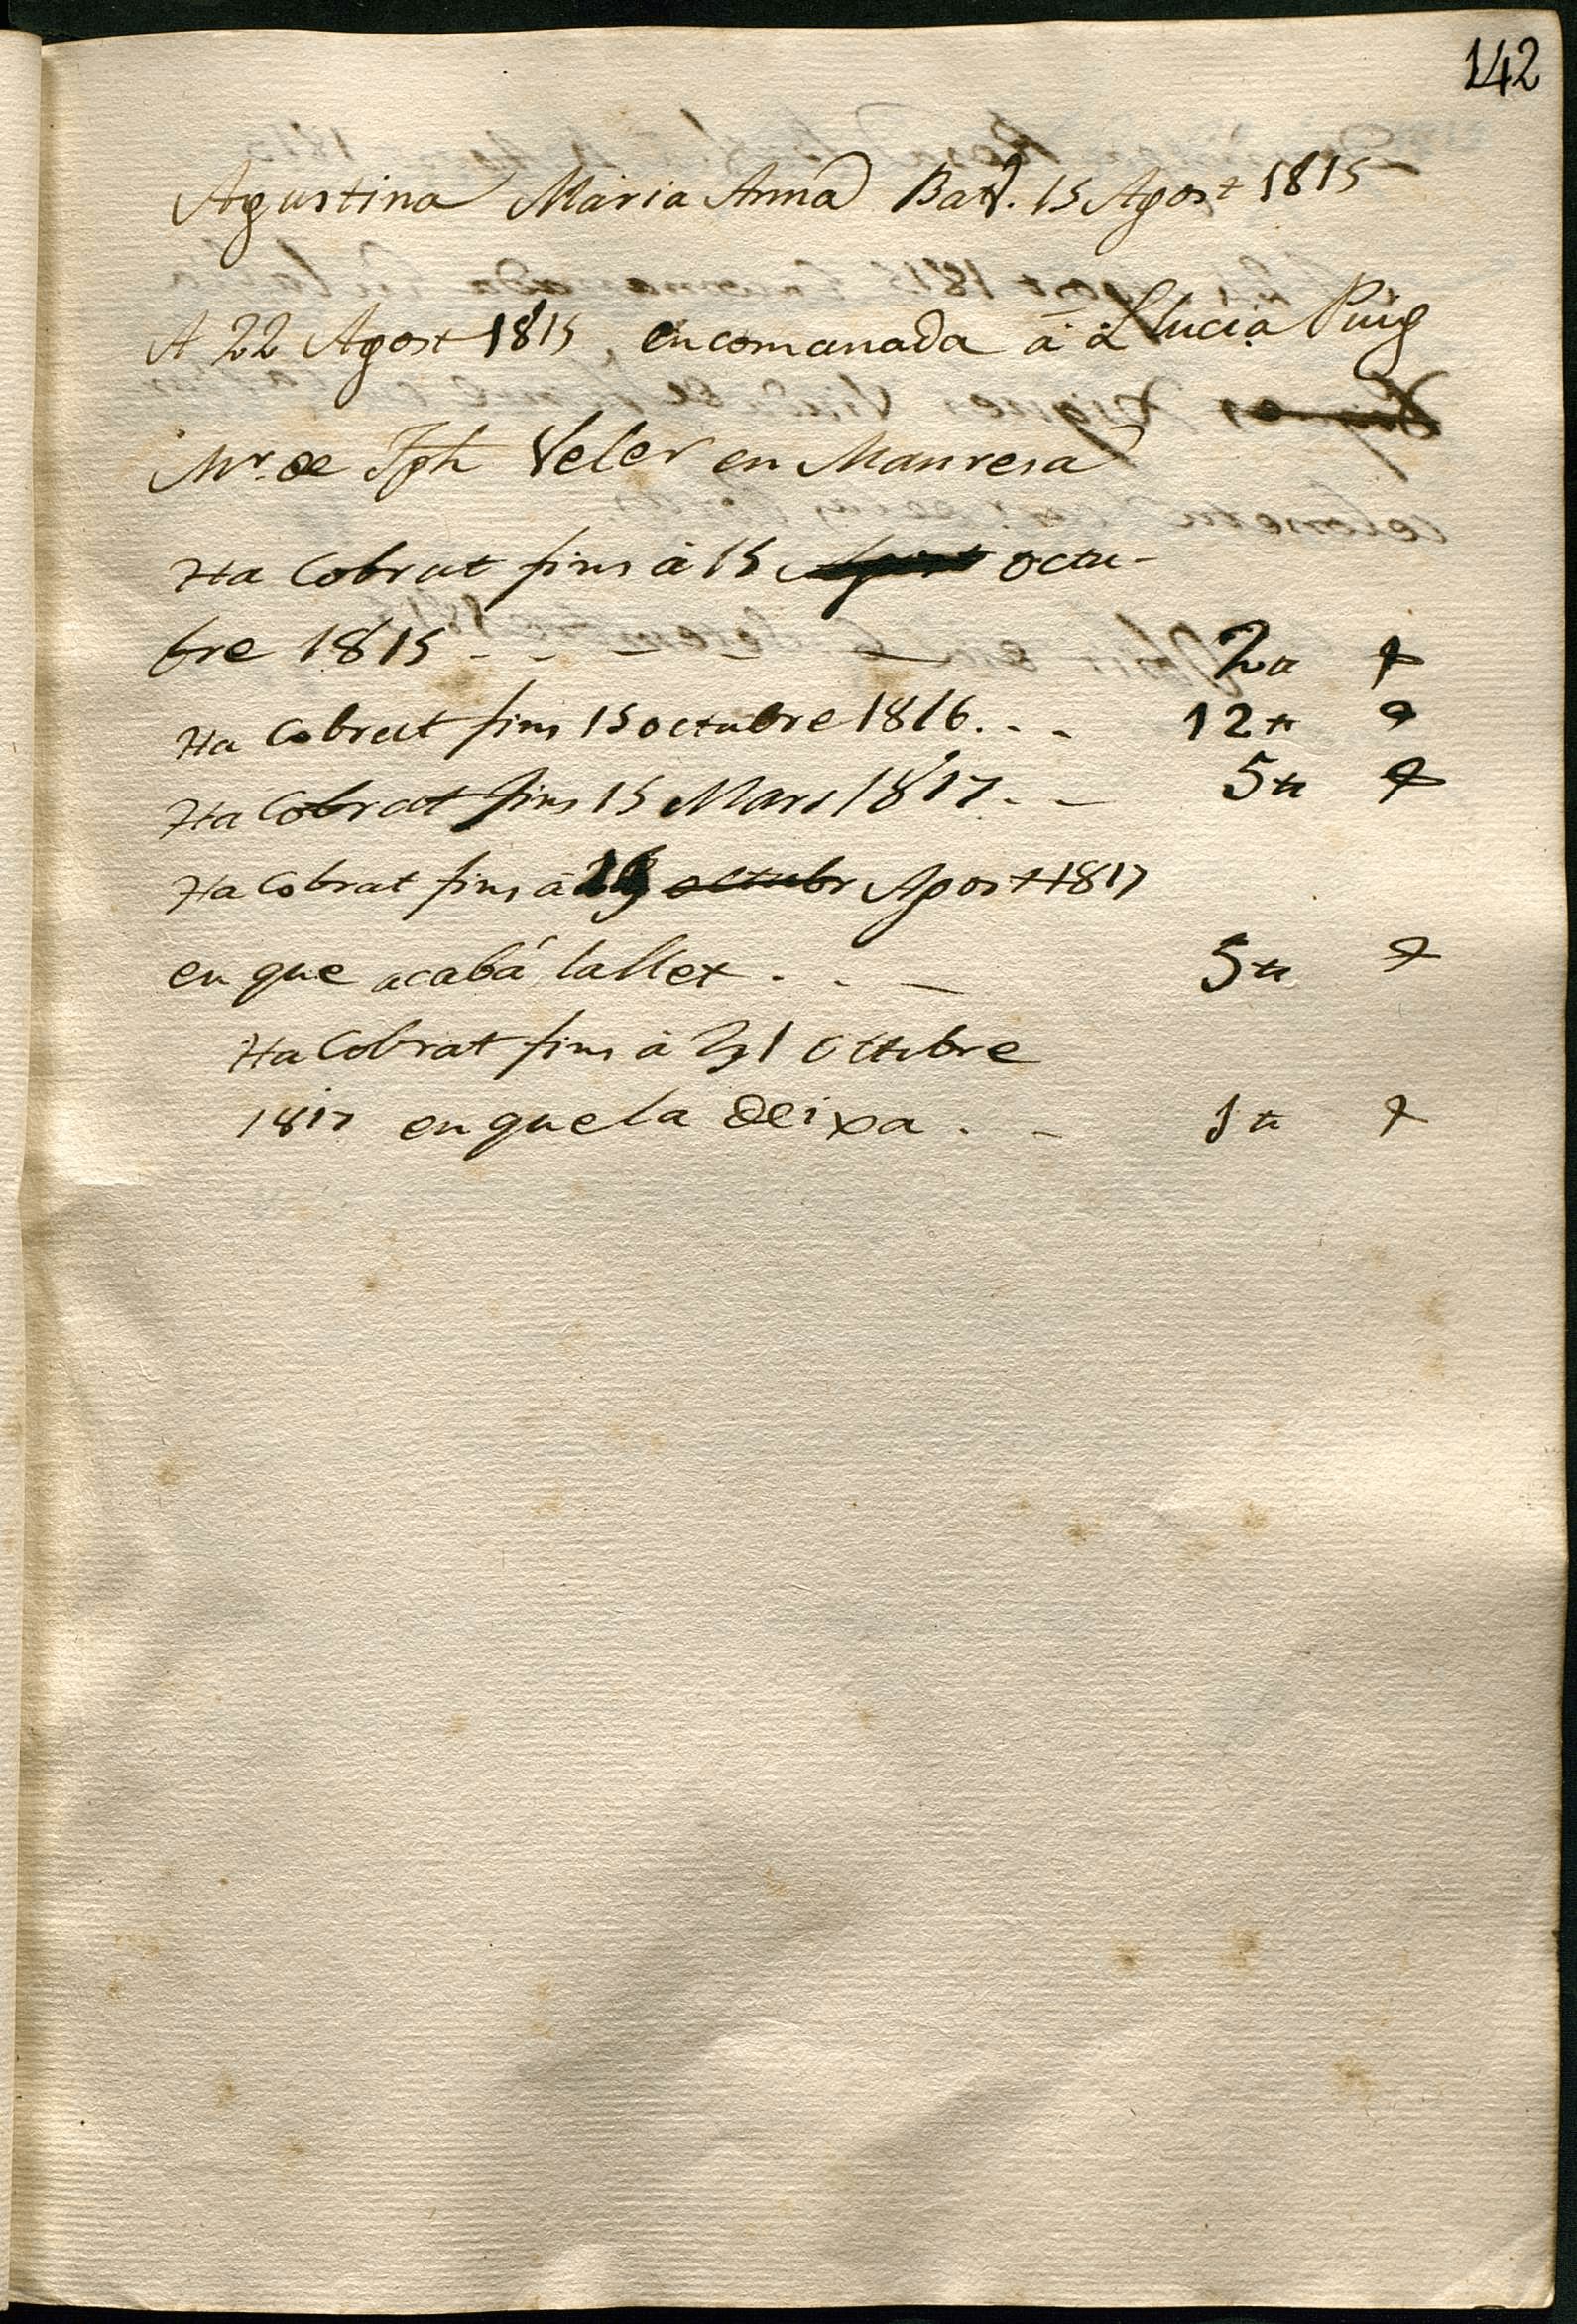 142
Agustina Maria Anna Bat. 15 Agost 1815
A 22 Agost 1815 encomanada á á Llucia Puig
Mr. de Jph Veler en Manresa
Ha Cobrat fins á 15 Agost octu-
bre 1815 - - - - - 2 ₶
Ha Cobrat fins 15 octubre 1816. - - 12 ₶
Ha Cobrat fins 15 Mars 1817. - - 5 ₶
Ha Cobrat fins á octubr Agost 1817
en que acabá la llet . - - 5 ₶
Ha Cobrat fins á 31 Octubre
1817 en que la deixa . - 1 ₶